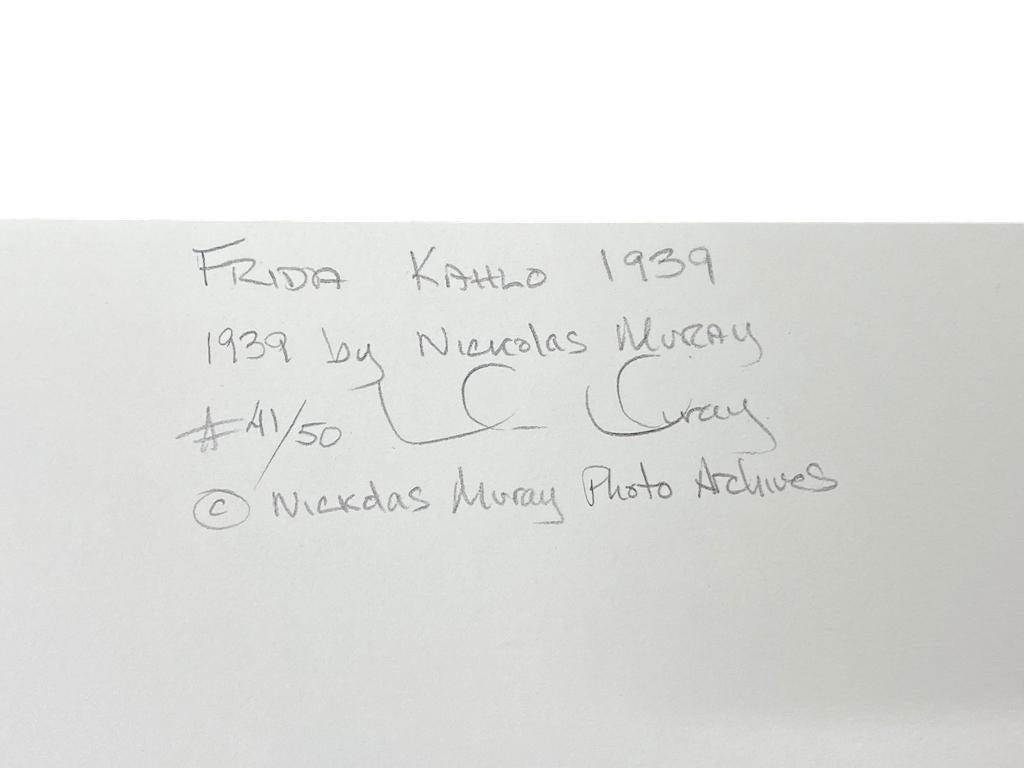 FRIDA KAHLO 1939
1939 by Nickolas Muray
#41/50
© Nickolas Muray Photo Archives